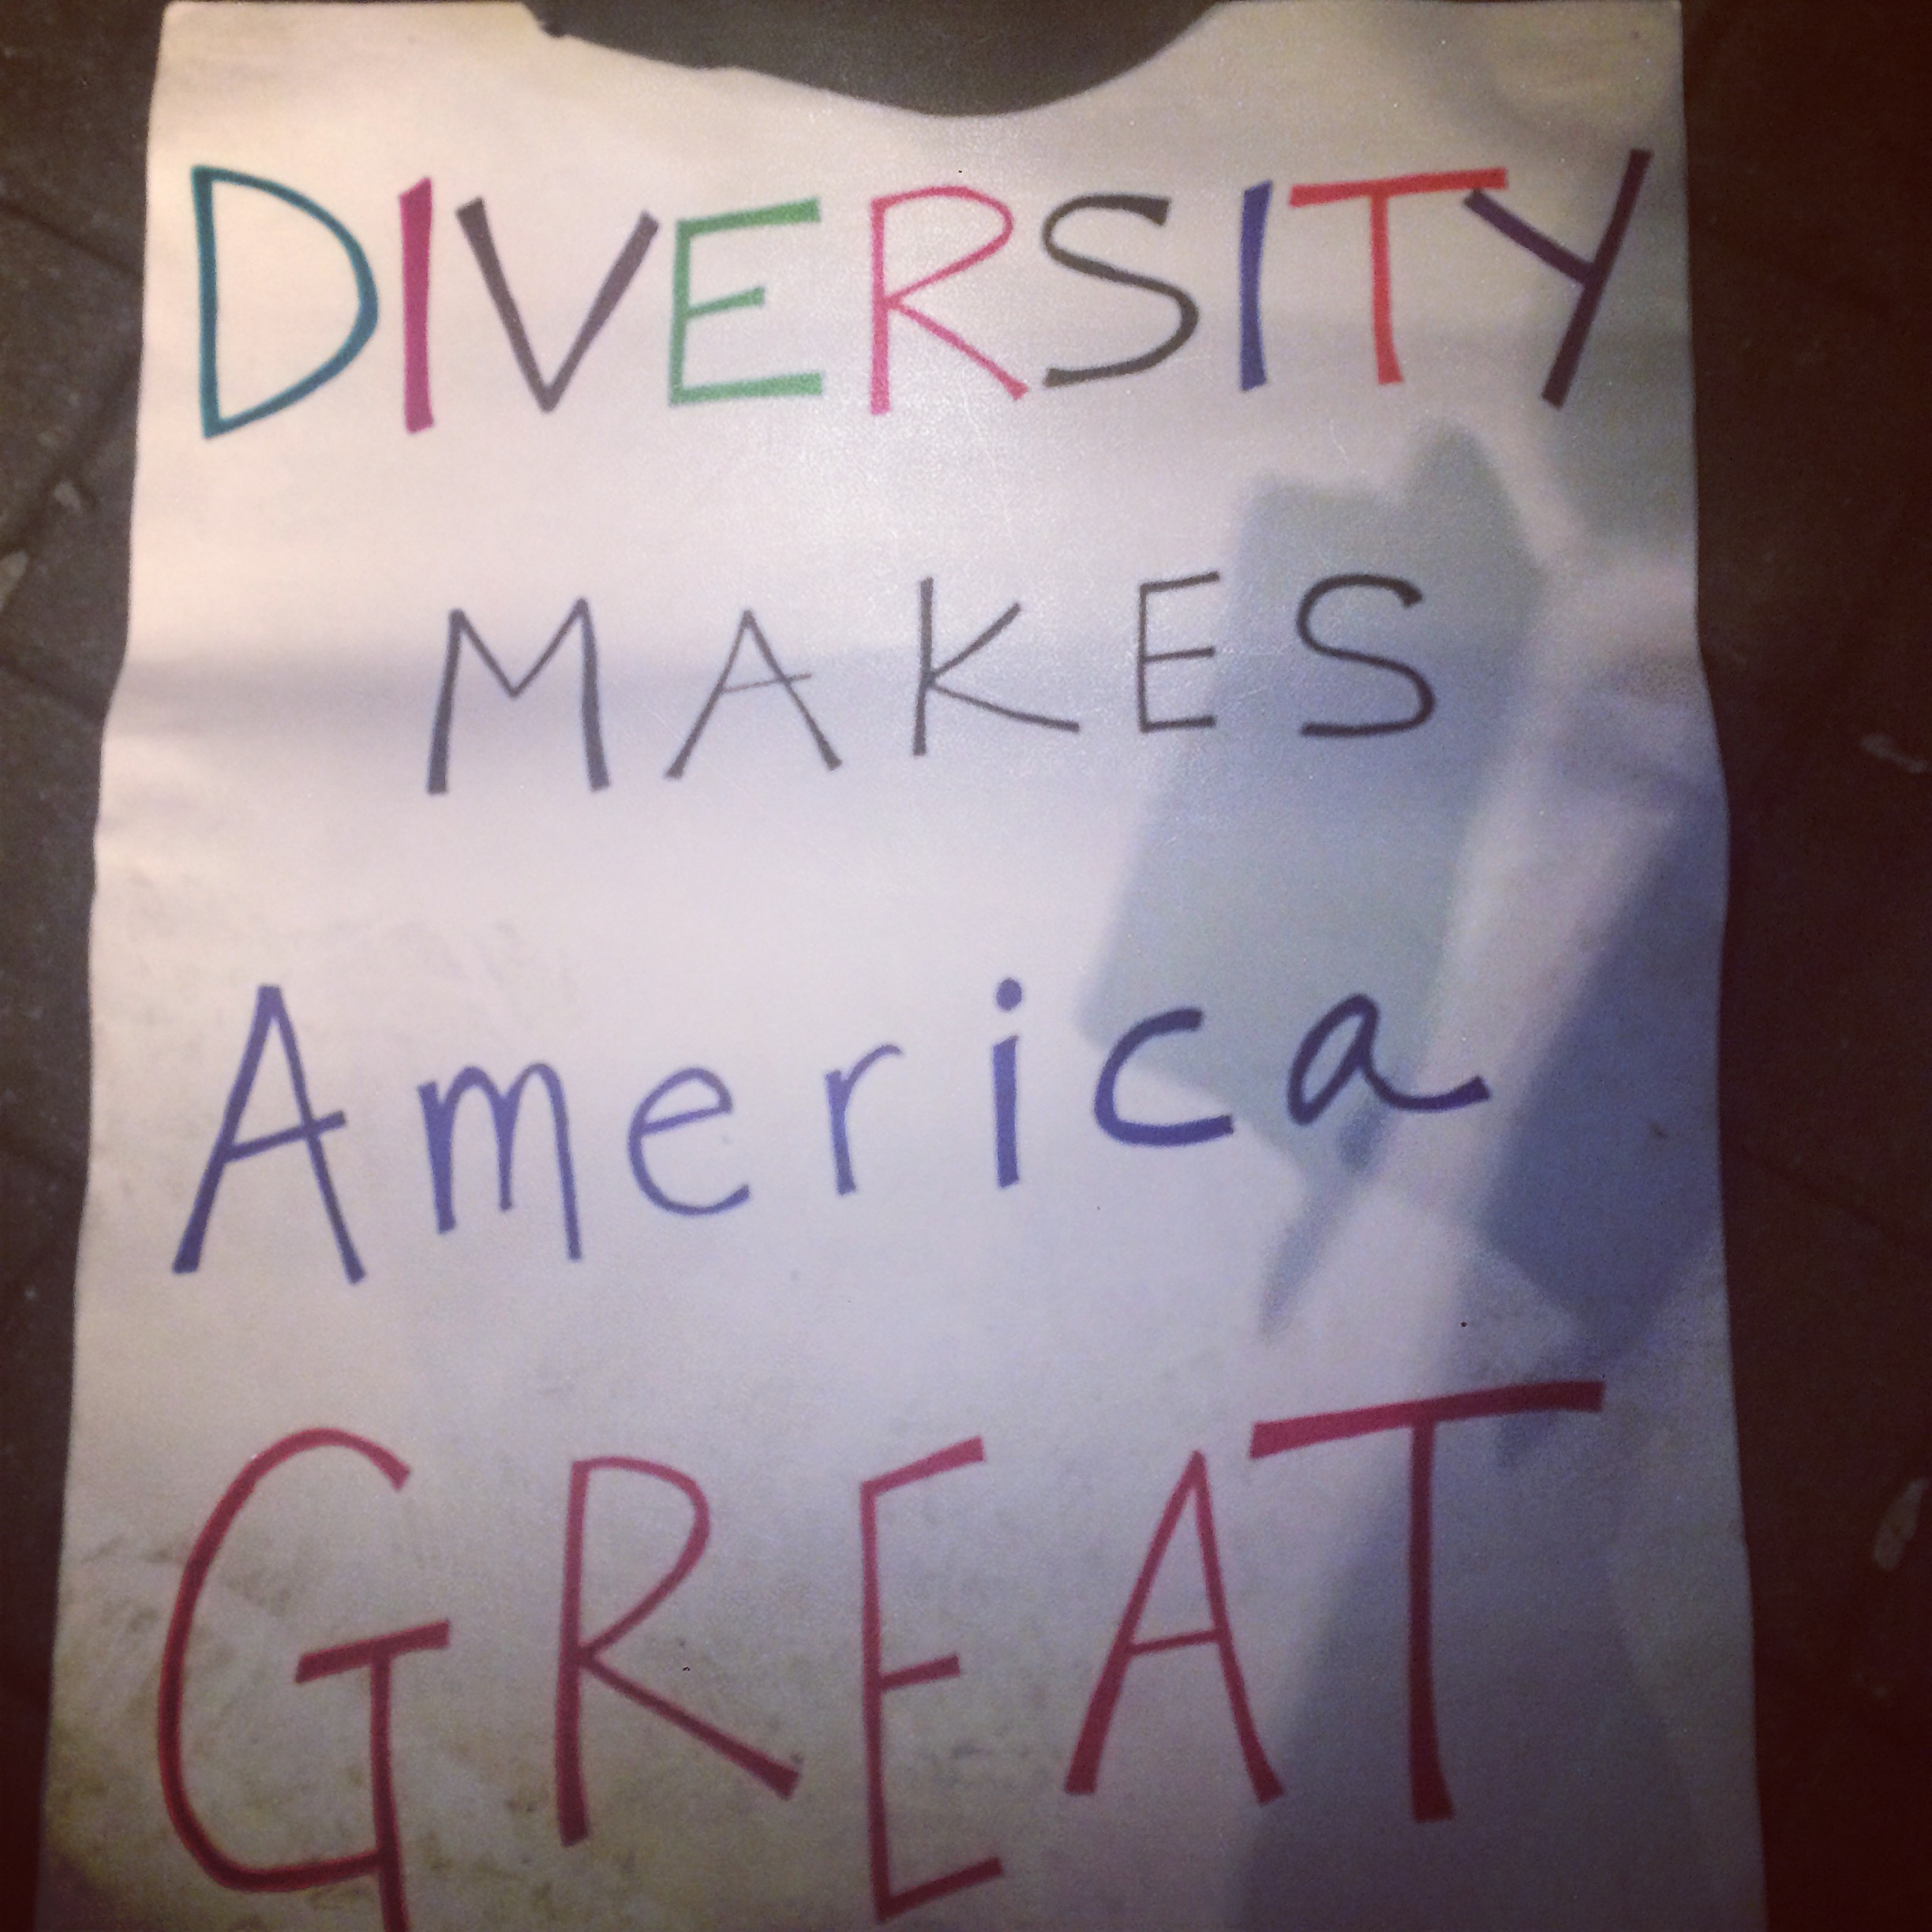 DIVERSITY
MAKES
America
GREAT